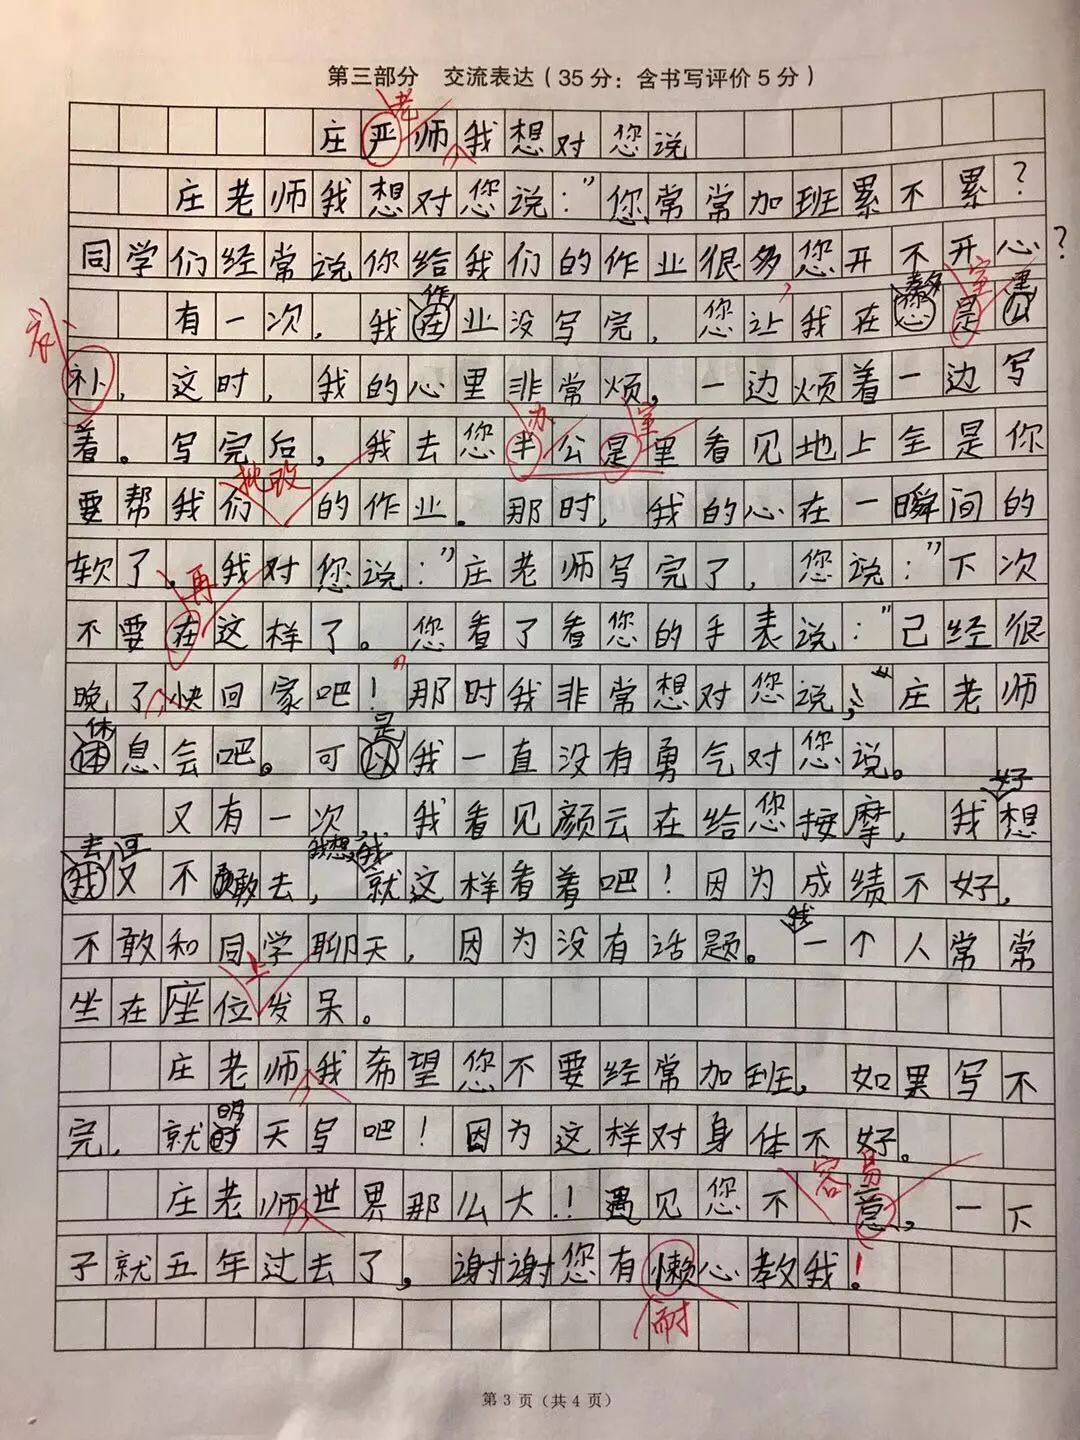 第三部分 交流表达(35分:含书写评价5分)
老
庄严师我想对您说
庄老师我想对您说:"您常常加班累不累?
同学们经常说你给我们的作业很多您开不开心?
作 教 室 里
有一次,我在业没写完,您让我在您是公
补,这时,我的心里非常烦,一边烦着一边写
办 室
着。写完后,我去您半公是里看见地上全是你
批改
要帮我们的作业。那时,我的心在一瞬间的
软了,我对您说:"庄老师写完了,您说:"下次
再
不要在这样了。您看了看您的手表说:"已经很
晚了快回家吧!那时我非常想对您说,庄老师
休 是
体息会吧。可以我一直没有勇气对您说。
好
又有一次,我看见颜云在给您按摩,我想
去 可 我想 我
我又不敢去,就这样看着吧!因为成绩不好,
我
不敢和同学聊天,因为没有话题。一个人常常
上
坐在座位发呆。
庄老师我希望您不要经常加班,如果写不
明
完,就时天写吧!因为这样对身体不好。
容易
庄老师世界那么大!遇见您不意,一下
子就五年过去了,谢谢您有懒心教我!
耐
第3页(共4页)